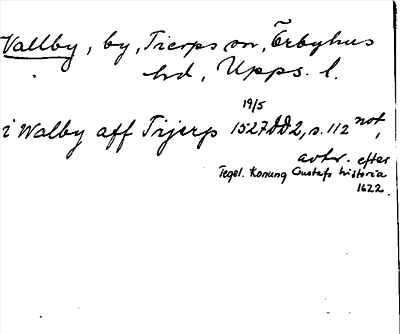 Vallby, by, Tierps sn, Örbyhus
hd, Upps. l.
19/5
i Walby aff Tijerp 1527 DD2, s. 112 not,
avtr. efter
Tegel. Konung Gustafs historia
1622.